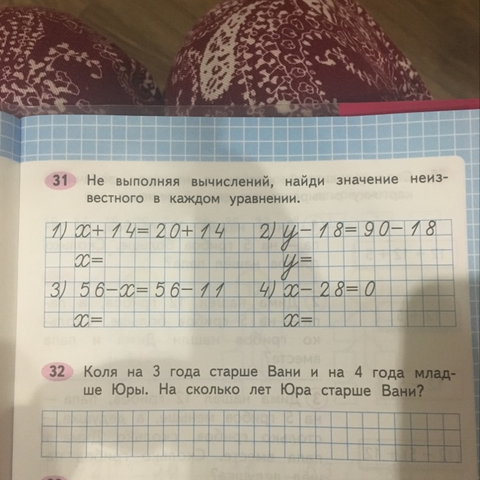 31 Не выполняя вычислений, найди значение неиз-
вестного в каждом уравнении.
1) x+14=20+14 2) y-18=90-18
x= y=
3) 56-x=56-11 4) x-28=0
x= x=
32 Коля на 3 года старше Вани и на 4 года млад-
ше Юры. На сколько лет Юра старше Вани?